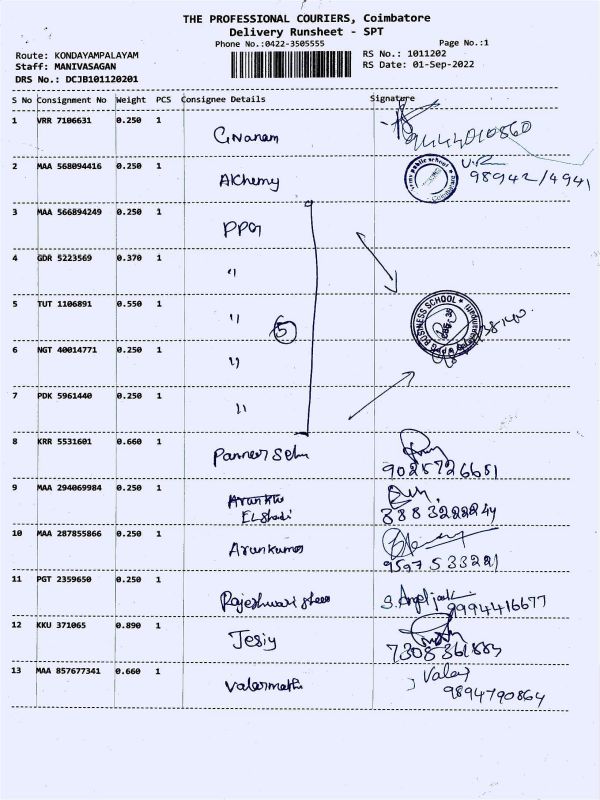 THE PROFESSIONAL COURIERS, Coimbatore
Delivery Runsheet - SPT
Phone No.:0422-3505555
Page No.:1
Route: KONDAYAMPALAYAM
RS No.: 1011202
Staff: MANIVASAGAN
RS Date: 01-Sep-2022
DRS No.: DCJB101120201
S No Consignment No Weight PCS Consignee Details Signature
1 VRR 7106631 0.250 1 Gnanam
2 MAA 568094416 0.250 1 Alchemy 98942/4941
public school
3 MAA 566894249 0.250 1 PPG
4 GDR 5223569 0.370 1 "
5 TUT 1106891 0.550 1 "
5
BUSINESS SCHOOL
6 NGT 40014771 0.250 1 "
7 PDK 5961440 0.250 1 "
8 KRR 5531601 0.660 1 9025726651
9 MAA 294069984 0.250 1 Elshadi
10 MAA 287855866 0.250 1 Arunkumar 9597533221
11 PGT 2359650 0.250 1 Rajeshwari 9994416677
12 KKU 371065 0.890 1 Jesiy
13 MAA 857677341 0.660 1 Valarmathi 9894790864